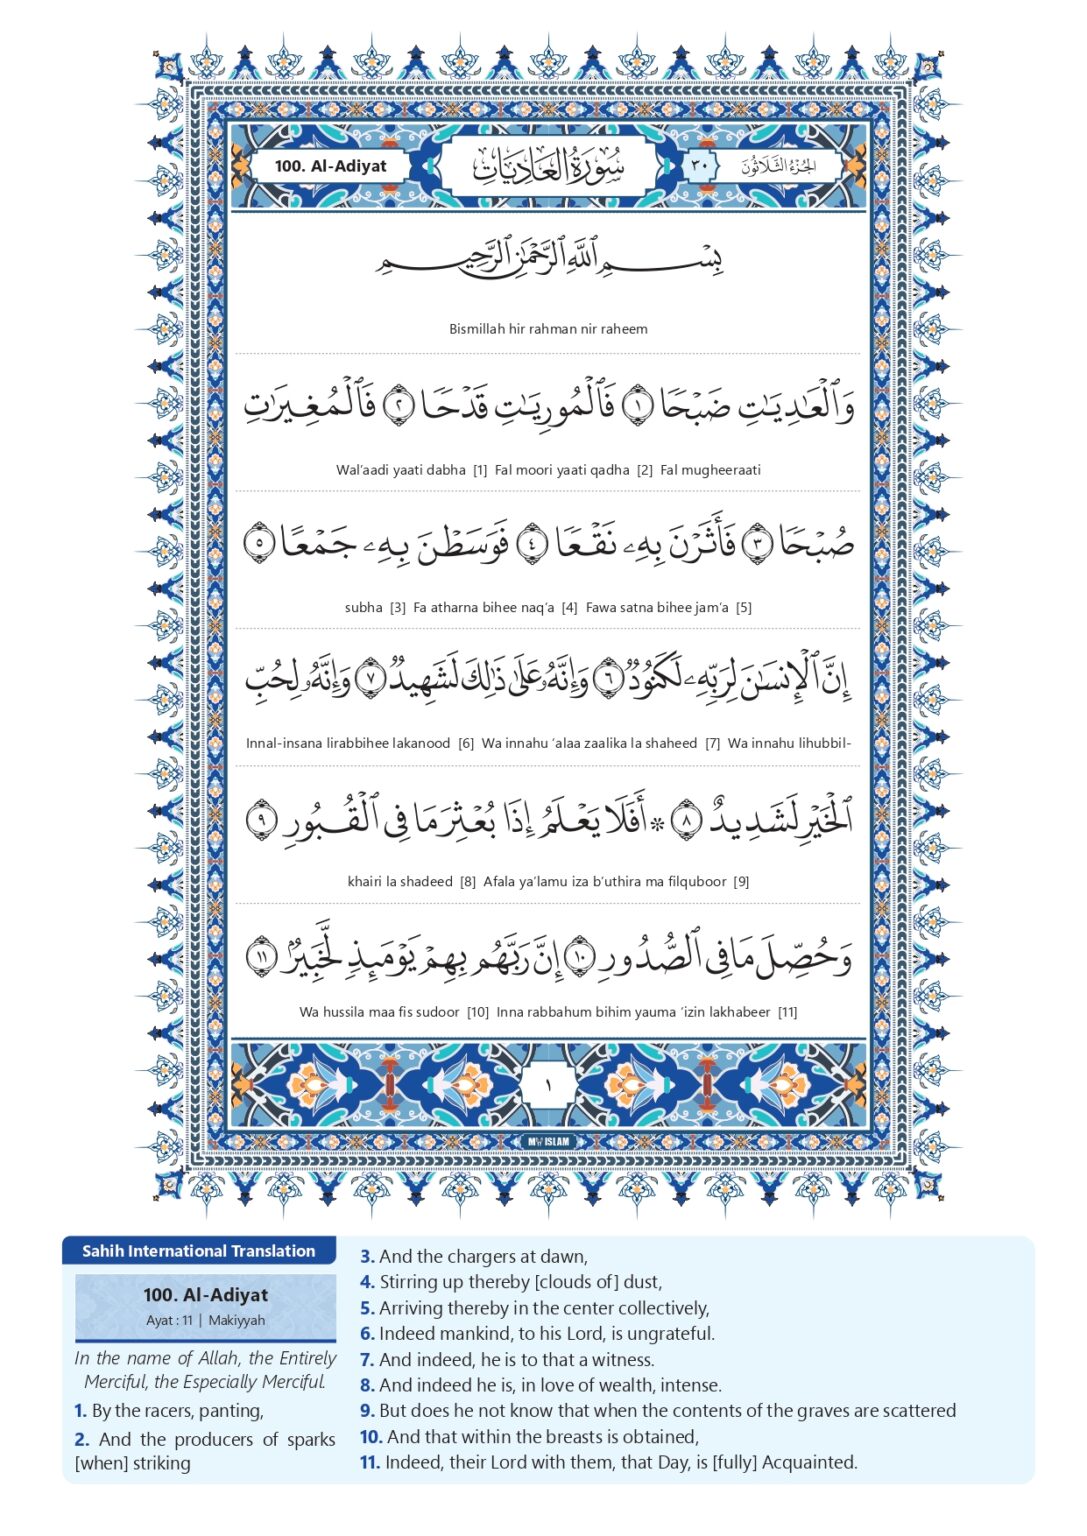 100. Al-Adiyat
سُورَةُ العَادِيَات
٣٠
الجُزءُ الثَّلَاثُونَ
بِسْمِ ٱللَّهِ ٱلرَّحْمَٰنِ ٱلرَّحِيمِ
Bismillah hir rahman nir raheem
وَٱلْعَٰدِيَٰتِ ضَبْحًا ١ فَٱلْمُورِيَٰتِ قَدْحًا ٢ فَٱلْمُغِيرَٰتِ
Wal’aadi yaati dabha [1] Fal moori yaati qadha [2] Fal mugheeraati
صُبْحًا ٣ فَأَثَرْنَ بِهِۦ نَقْعًا ٤ فَوَسَطْنَ بِهِۦ جَمْعًا ٥
subha [3] Fa atharna bihee naq’a [4] Fawa satna bihee jam’a [5]
إِنَّ ٱلْإِنسَٰنَ لِرَبِّهِۦ لَكَنُودٌ ٦ وَإِنَّهُۥ عَلَىٰ ذَٰلِكَ لَشَهِيدٌ ٧ وَإِنَّهُۥ لِحُبِّ
Innal-insana lirabbihee lakanood [6] Wa innahu ‘alaa zaalika la shaheed [7] Wa innahu lihubbil-
ٱلْخَيْرِ لَشَدِيدٌ ٨ ۞ أَفَلَا يَعْلَمُ إِذَا بُعْثِرَ مَا فِى ٱلْقُبُورِ ٩
khairi la shadeed [8] Afala ya’lamu iza b’uthira ma filquboor [9]
وَحُصِّلَ مَا فِى ٱلصُّدُورِ ١٠ إِنَّ رَبَّهُم بِهِمْ يَوْمَئِذٍ لَّخَبِيرٌۢ ١١
Wa hussila maa fis sudoor [10] Inna rabbahum bihim yauma ‘izin lakhabeer [11]
١
MY ISLAM
Sahih International Translation
100. Al-Adiyat
Ayat : 11 | Makiyyah
In the name of Allah, the Entirely
Merciful, the Especially Merciful.
1. By the racers, panting,
2. And the producers of sparks
[when] striking
3. And the chargers at dawn,
4. Stirring up thereby [clouds of] dust,
5. Arriving thereby in the center collectively,
6. Indeed mankind, to his Lord, is ungrateful.
7. And indeed, he is to that a witness.
8. And indeed he is, in love of wealth, intense.
9. But does he not know that when the contents of the graves are scattered
10. And that within the breasts is obtained,
11. Indeed, their Lord with them, that Day, is [fully] Acquainted.